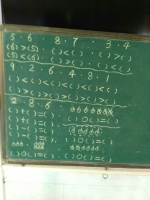 5 . 6 . 8 . 7 . 3 . 4
(6) > (5) . ( ) < ( ) . ( ) > ( )
(5) < (6) . ( ) > ( ) . ( ) < ( )
9 . 2 . 6 . 4 . 8 . 1
( ) < ( ) < ( ) < ( ) < ( )
( ) > ( ) > ( ) > ( ) > ( )
2 . 8 . 6
( ) + ( ) = ( )
( ) + ( ) = ( )
( ) - ( ) = ( )
( ) - ( ) = ( )
( ) ○ ( ) = ( )
( ) ○ ( ) = ( )
( ) ○ ( ) = ( )
( ) ○ ( ) = ( )